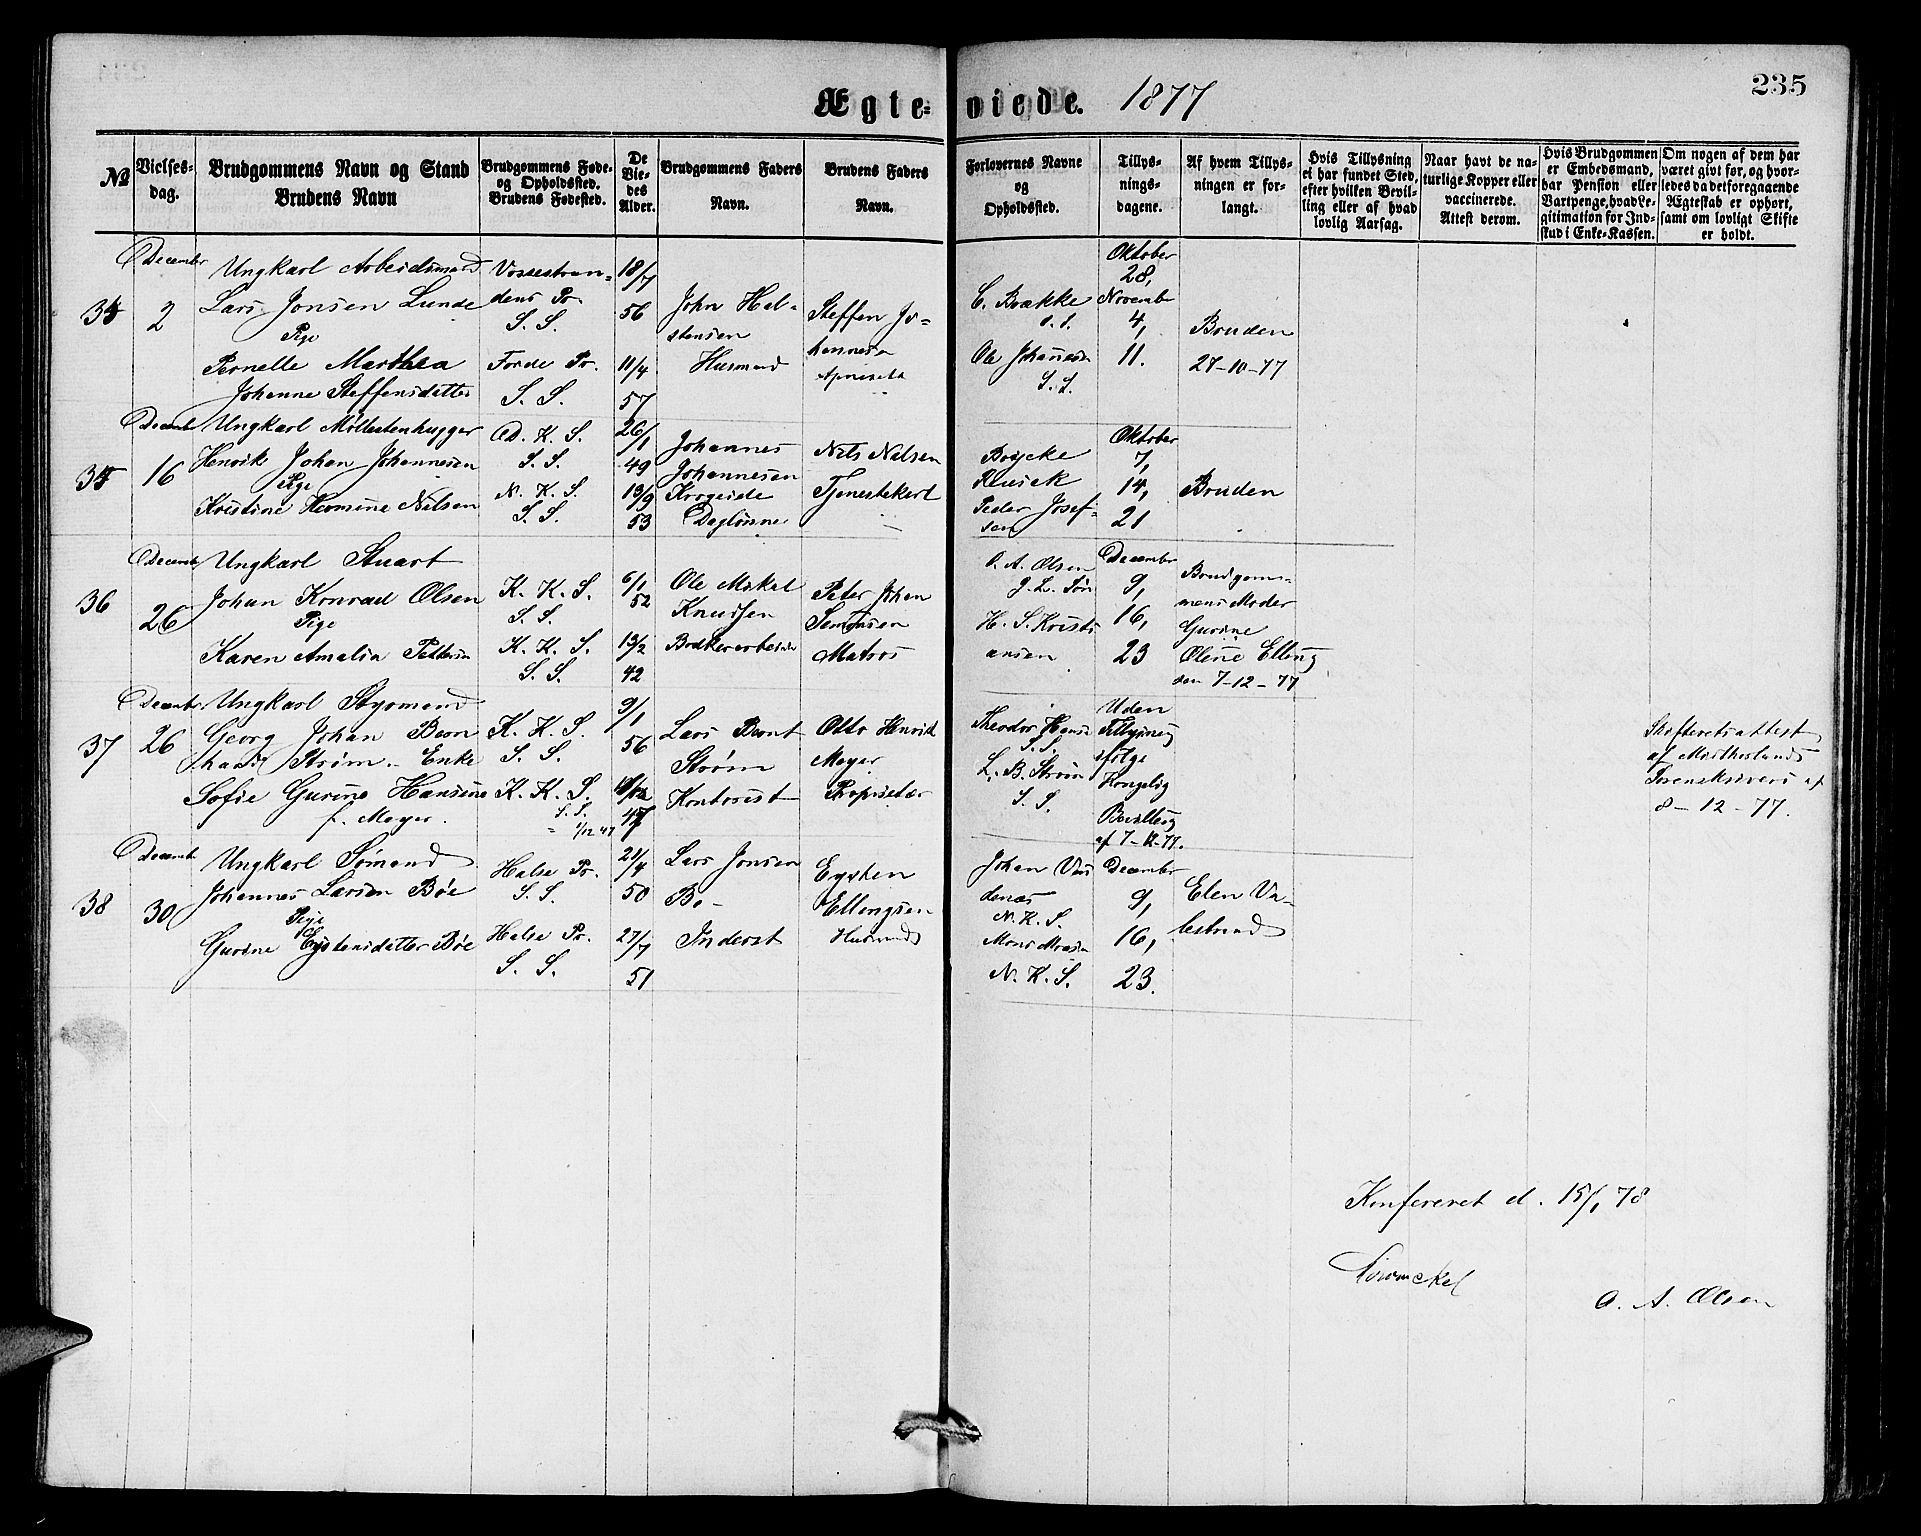 235
Ægteviede. 1877
No
Vielses-
dag.
Brudgommens Navn og Stand
Brudens Navn
Brudgommens Føde-
og Opholdssted.
Brudens Fødested.
De
Vie-
des
Alder.
Brudgommens Faders
Navn.
Brudens Faders
Navn.
Forlovernes Navne
og
Opholdssted.
Tillys-
nings-
dagene.
Af hvem Tillys-
ningen er for-
langt.
Hvis Tillysning
ei har fundet Sted,
efter hvilken Bevil-
ling eller af hvad
lovlig Aarsag.
Naar havt de na-
turlige Kopper eller
vaccinerede.
Attest derom.
Hvis Brudgommen
er Embedsmand,
har Pension eller
Vartpenge, hvad Le-
gitimation for Ind-
skud i Enke-Kassen.
Om nogen af dem har
været givt før, og hvor-
ledes da det foregaaende
Ægteskab er ophørt,
samt om lovligt Skifte
er holdt.
34
December
2
Ungkarl Arbeidsmand
Lars Jonsen Lunde
Pige
Pernelle Marthea
Johanne Steffensdatter
Vossestran-
dens Pr.
S. S.
Førde Pr.
S. S.
18/7
56
11/4
57
John Hal-
stensen
Husmand
Steffen Jo-
hannesen
C. Brække
s. s.
Ole Johannesen
S. S.
Oktober
28,
November
4,
11.
Bruden
27-10-77
35
December
16
Ungkarl Møllestenhugger
Henrik Johan Johannesen
Pige
Kristine Hermine Nilsen
D. K. S.
S. S.
N. K. S.
S. S.
26/1
49
13/9
53
Johannes
Johannesen
Krogeide
Daglønner
Nils Nilsen
Tjenestekarl
Peder Josef-
sen
Oktober
7,
14,
21
Bruden
36
December
26
Ungkarl Stuart
Johan Konrad Olsen
Pige
Karen Amalia Pettersen
K. K. S.
S. S.
K. K. S.
S. S.
6/1
52
13/2
42
Ole Mikal
Knudsen
Peter Johan
Simonsen
Matros
O. A. Olsen
H. S. Kristi
ansen
December
9,
16,
23
Brudgom-
mens Moder
Gurine
Oline Elling
den 7-12-77
37
December
26
Ungkarl Styrmand
Georg Johan Bern
hard Strøm. Enke
Sofie Gurine Hansine
f. Meyer.
K. K. S.
S. S.
K. K. S.
S. S.
1/12 47
9/1
56
47
Lars Bernt
Strøm
Kontorist
Otto Henrik
Meyer
Proprietær
Theodor Hansen
S. S.
L. B. Strøm
S. S.
Uden
Tillysning
ifølge
Kongelig
Bevilling
af 7-12-77.
Skifteretsattest
af Midhordlands
Sorenskriveri af
8-12-77.
38
December
30
Ungkarl Sømand
Johannes Larsen Bøe
Pige
Gurine Eystensdatter Bøe
Halse Pr.
S. S.
Halse Pr.
S. S.
21/4
50
27/7
51
Lars Jonsen
Bø
Inderst
Eysten
Ellingsen
Husmand
Johan Van
denæs
N. K. S.
N. K. S.
December
9,
16,
23.
Elen Va-
lestrand
Konfereret d. 15/1 78
O. A. Olsen